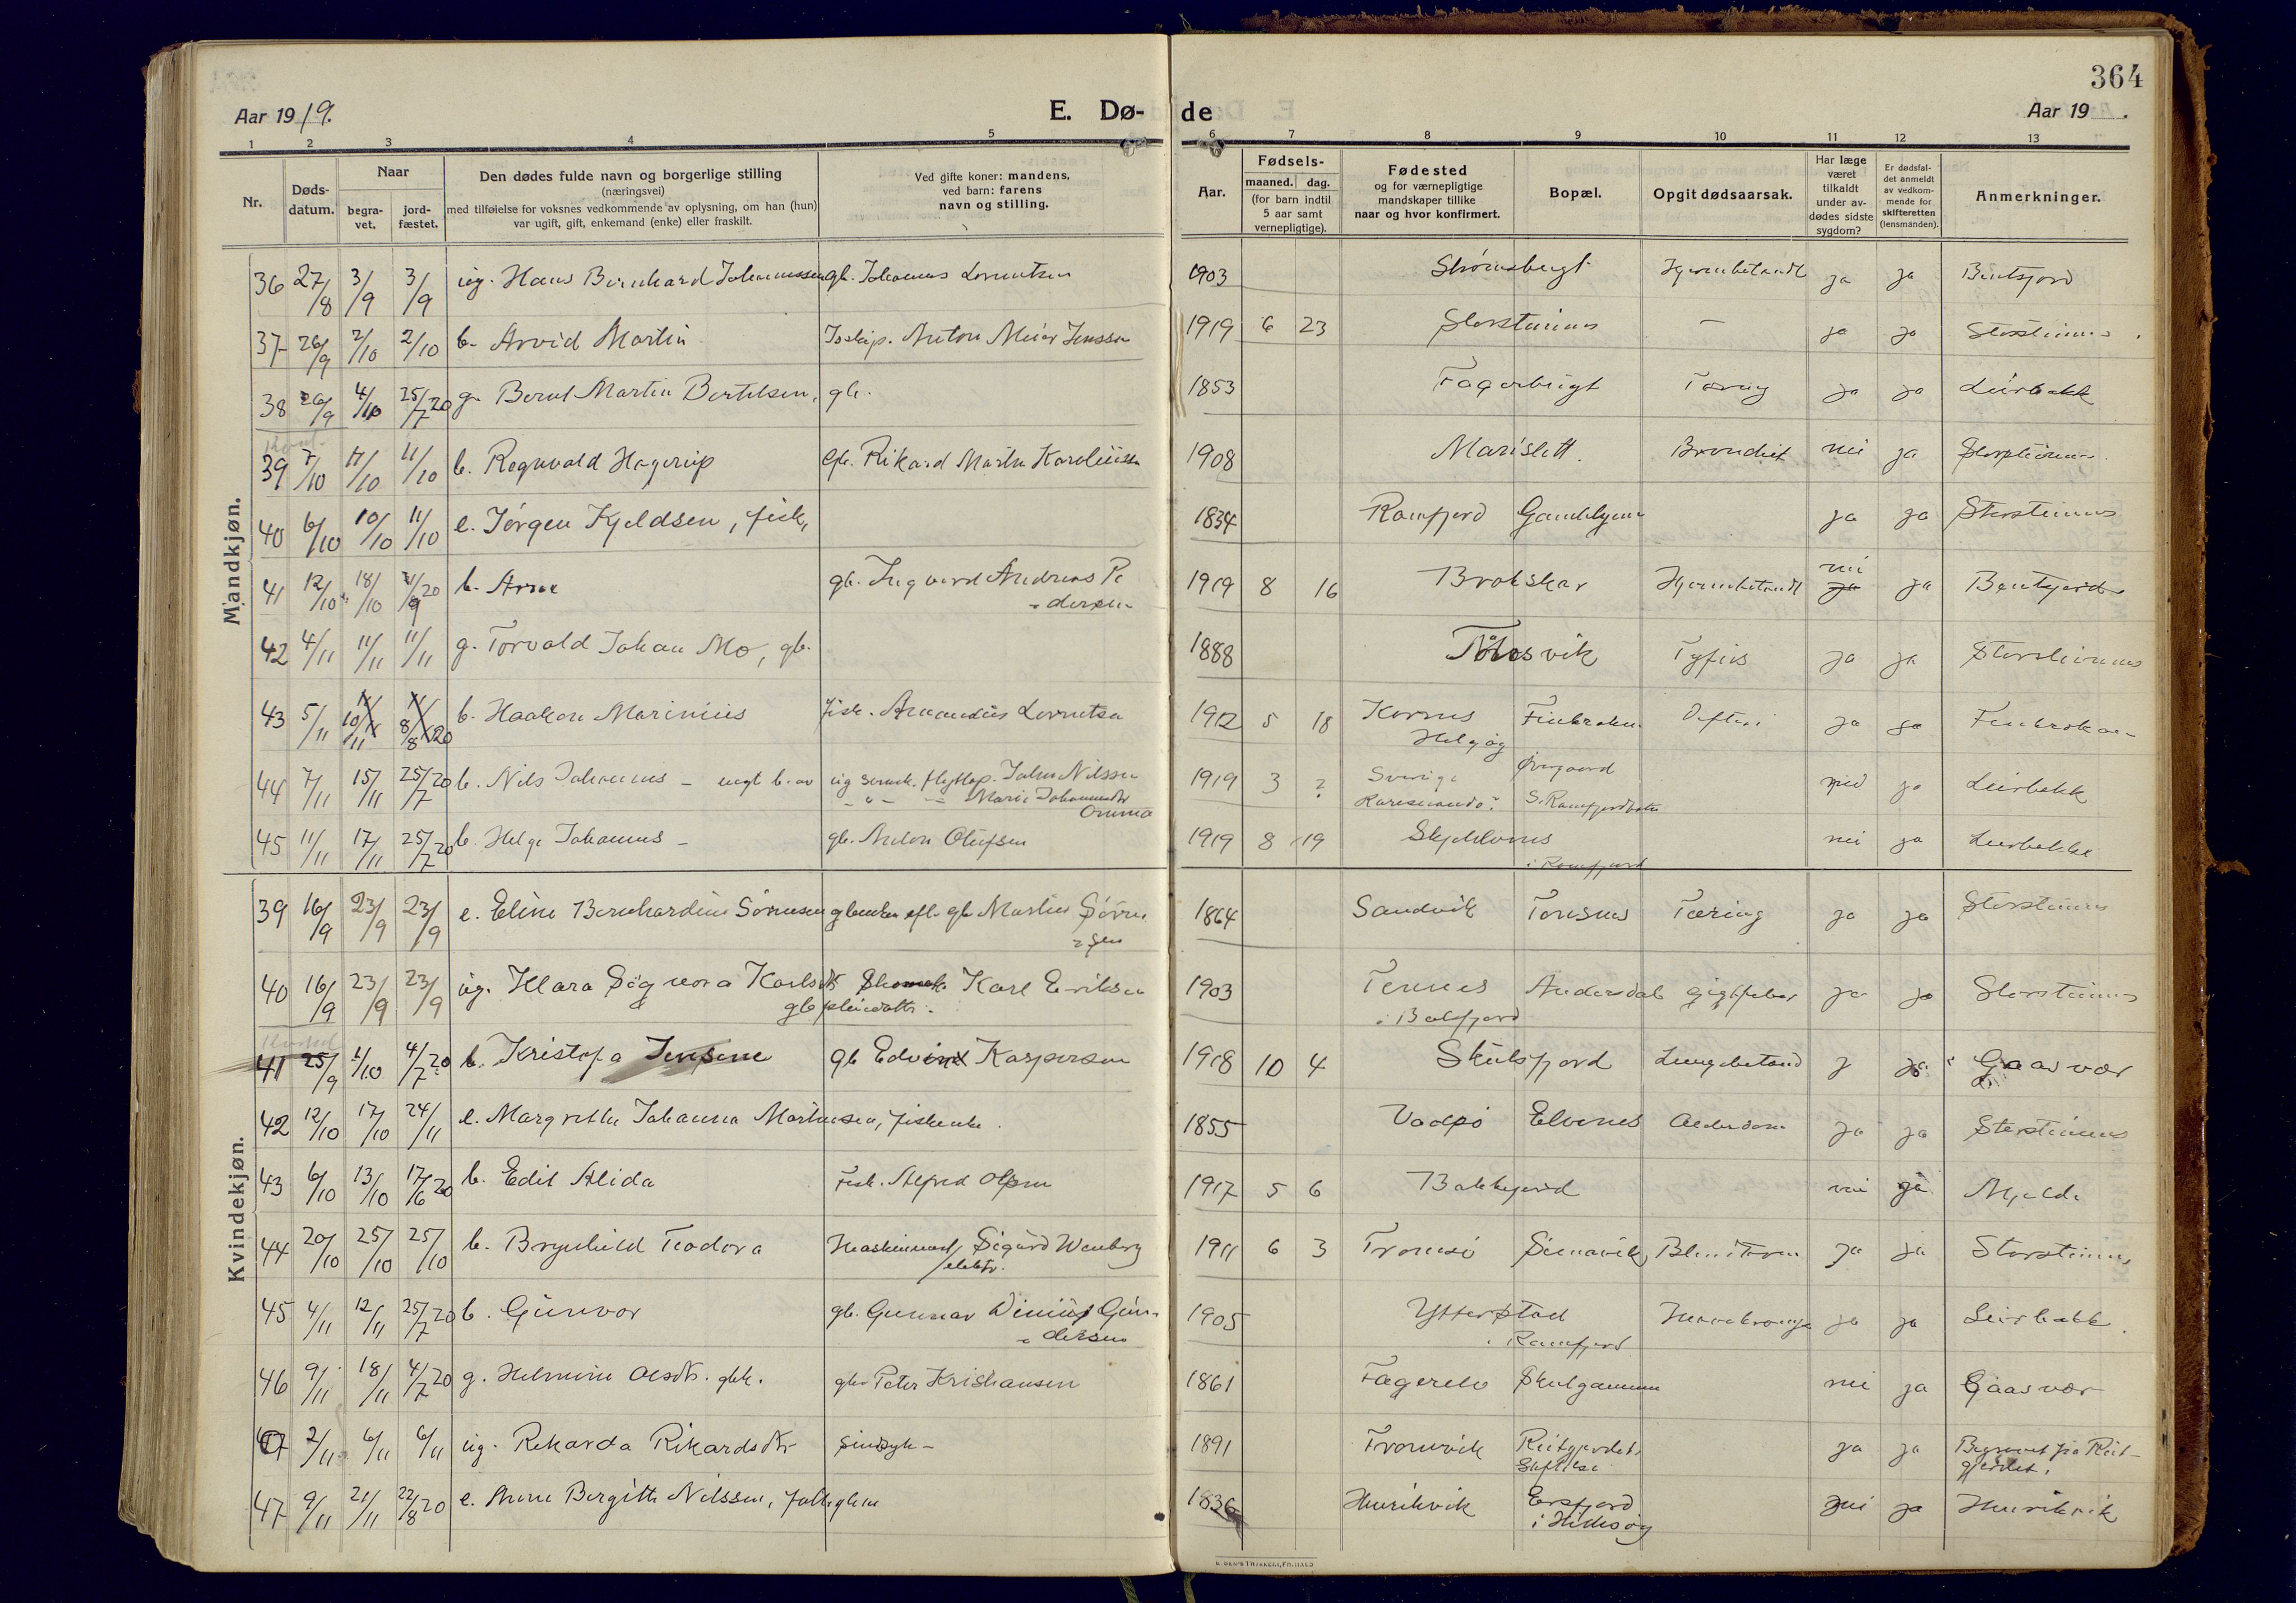 364
Aar 1919. E. Dø- de Aar 19 .
1 2 3 4 5 6 7 8 9 10 11 12 13
Nr. Døds-datum. Naar begra-vet. jord-fæstet.
Den dødes fulde navn og borgerlige stilling
(næringsvei)
med tilføielse for voksnes vedkommende av oplysning, om han (hun)
var ugift, gift, enkemand (enke) eller fraskilt.
Ved gifte koner: mandens,
ved barn: farens
navn og stilling.
Aar.
Fødsels-
maaned. dag.
(for barn indtil
5 aar samt
vernepligtige).
Fødested
og for værnepligtige
mandskaper tillike
naar og hvor konfirmert.
Bopæl.
Opgit dødsaarsak.
Har læge
været
tilkaldt
under av-
dødes sidste
sygdom?
Er dødsfal-
det anmeldt
av vedkom-
mende for
skifteretten
(lensmanden).
Anmerkninger.
Mandkjøn.
36 27/8 3/9 3/9 ug. Hans Bernhard Johannessen gb. Johannes Lorentsen 1903 Strømsbugt Hjernebetændt ja ja Bentsjord
37 26/9 2/10 2/10 b. Arvid Martin Anton Meier Jenssen 1919 6 23 Storsteinnes – ja ja Storsteinnes
38 26/9 4/10 25/7 20 g. Bernt Martin Bertelsen, gb. 1853 Fagerbugt Tæring ja ja Leirbakk
39 7/10 11/10 11/10 b. Ragnvald Hagerup Rikard Martin Karoliussen 1908 Marislett Brændhet nei ja Storsteinnes
40 6/10 10/10 11/10 e. Jørgen Kjeldsen, fisk, 1834 Ramfjord Gammelgaard ja ja Storsteinnes
41 12/10 18/10 20 b. Arne gb. Ingvard Andreas Pe
dersen 1919 8 16 Brokskar Hjernebetændt nei ja Bentsjord
42 4/11 11/11 11/11 g. Torvald Johan Mo, gb. 1888 svik Tyfus ja ja Storsteinnes
43 5/11 10/11 8/8 20 b. Haakon Marinius fisk. Amandus Lorentsen 1912 5 18 Kornes
Helgøy Finkroken Difteri ja ja Finkroken
44 7/11 15/11 25/7 20 b. Nils Johannes – uegt b. av ug svensk. flytlap. John Nilssen
Marie Johannesdtr
Omma 1919 3 ? Sverige
Karesuando? Øvergaard
S. Ramfjordbotn nei ja Leirbakk
45 11/11 17/11 25/7 20 b. Helge Johannes – gb. Anton Olufsen 1919 8 19 Skjelnes
i Ramfjord nei ja Leirbakk
Kvindekjøn.
39 16/9 23/9 23/9 e. Eline Bernhardine Sørensen gbenke eft. gb Martin Søren
sen 1864 Sandvik Tonsnes Tæring ja ja Storsteinnes
40 16/9 23/9 23/9 ug. Klara Signora Karlsdtr
gbpleiedatter. Karl Eriksen 1903 Tennes
i Balsfjord Andersdal gigtfeber ja ja Storsteinnes
41 25/9 1/10 4/7 20 b. Kristofa Jensine gb Edvin Kaspersen 1918 10 4 Skulsfjord Lungebetænd j ja Gaasvær
42 12/10 17/10 24/11 e. Margrethe Johanna Martinsen, fiskenke. 1855 Vadsø Elvenes Alderdom ja ja Storsteinnes
43 6/10 13/10 17/6 20 b. Edit Alida Fisk. Alfred Olsen 1917 5 6 Bakkejord nei ja Mjelde
44 20/10 25/10 25/10 b. Brynhild Teodora Maskinmest, Sigurd Wenberg
elektr. 1911 6 3 Tromsø Simavik Blindtarm ja ja Storsteinnes
45 4/11 12/11 25/7 20 b. Gunvor gb. Gunnar Gun
dersen 1905 Ytterstad
i Ramfjord ja ja Leirbakk
46 9/11 18/11 4/7 20 g. Helmine Olsdtr. gbk. gb. Peter Kristiansen 1861 Fagerelv Skulgammen nei ja Gaasvær
47 2/11 6/11 6/11 ug. Rikarda Rikardsdtr sindsyk – 1891 Tromvik Reitgjerdets
ja ja Begravet fra Reit-
gjerdet.
47 9/11 21/11 22/8 20 e. Anne Bergitte Nilssen, 1836 Henrikvik Ersfjord
i Hillesøy nei ja Henrikvik